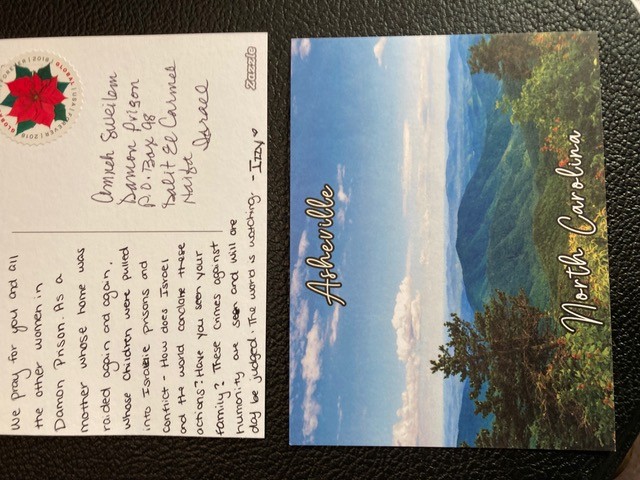 We pray for you and all
the other women in
Damon Prison. As a
mother whose home was
raided again and again,
whose children were pulled
into Israelie prisons and
conflict - How does Israel
and the world condone these
actions? Have you seen your
family? These crimes against
humanity are seen and will one
day be judged. The world is watching. - Izzy ♥
GLOBAL
FOREVER
2018
USA
Damon Prison
P.O. Box 98
Dalit El Carmel
Haifa
Israel
Zazzle
Asheville
North Carolina